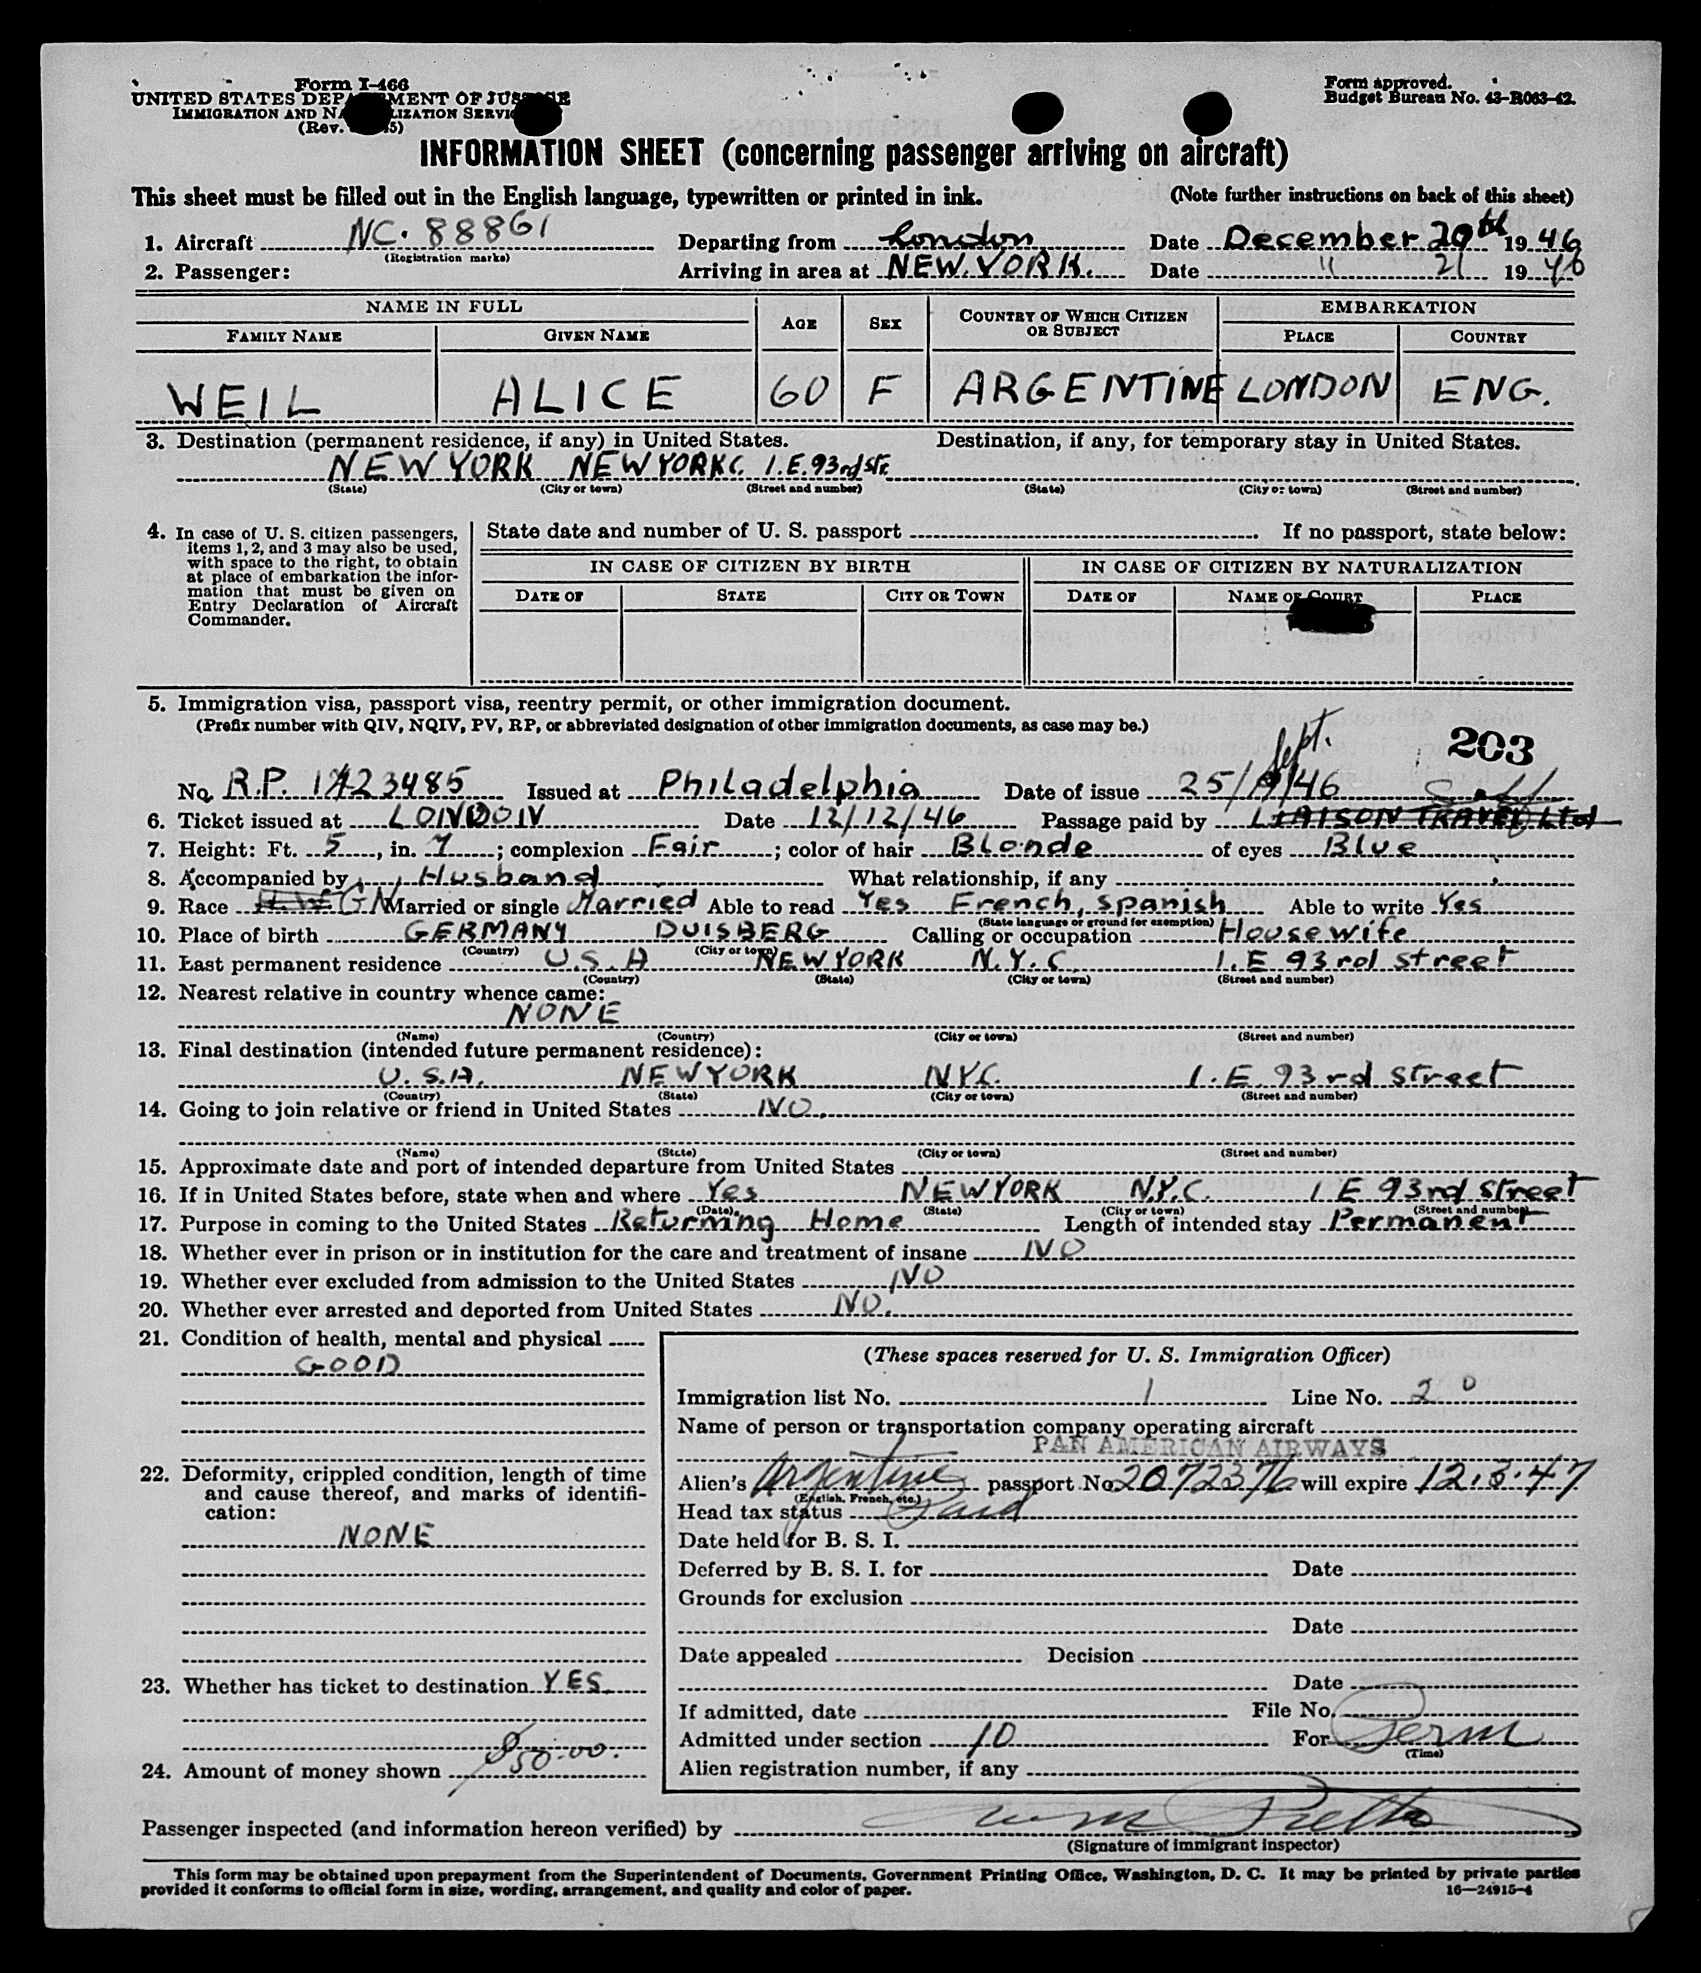 Form I-466
UNITED STATES DEPARTMENT OF JUSTICE
IMMIGRATION AND NATURALIZATION SERVICE
(Rev. 5)
Form approved.
Budget Bureau No. 43-R063-42.
INFORMATION SHEET (concerning passenger arriving on aircraft)
This sheet must be filled out in the English language, typewritten or printed in ink. (Note further instructions on back of this sheet)
1. Aircraft NC. 88861 Departing from London Date December 20th 1946
(Registration marks)
2. Passenger: Arriving in area at NEW. YORK. Date " 21 1946
NAME IN FULL AGE SEX COUNTRY OF WHICH CITIZEN OR SUBJECT EMBARKATION
FAMILY NAME GIVEN NAME PLACE COUNTRY
WEIL ALICE 60 F ARGENTINE LONDON ENG.
3. Destination (permanent residence, if any) in United States. Destination, if any, for temporary stay in United States.
NEW YORK NEW YORK C. 1. E. 93rd Str.
(State) (City or town) (Street and number) (State) (City or town) (Street and number)
4. In case of U. S. citizen passengers, items 1, 2, and 3 may also be used, with space to the right, to obtain at place of embarkation the information that must be given on Entry Declaration of Aircraft Commander.
State date and number of U. S. passport If no passport, state below:
IN CASE OF CITIZEN BY BIRTH IN CASE OF CITIZEN BY NATURALIZATION
DATE OF STATE CITY OR TOWN DATE OF NAME OF COURT PLACE
5. Immigration visa, passport visa, reentry permit, or other immigration document.
(Prefix number with QIV, NQIV, PV, RP, or abbreviated designation of other immigration documents, as case may be.)
Sept. 203
No. R.P. 1423485 Issued at Philadelphia Date of issue 25/9/46
6. Ticket issued at LONDON Date 12/12/46 Passage paid by LIAISON TRAVEL Ltd
7. Height: Ft. 5, in. 7; complexion Fair; color of hair Blonde of eyes Blue
8. Accompanied by Husband What relationship, if any
9. Race Married or single Married Able to read Yes French, Spanish Able to write Yes
(State language or ground for exemption)
10. Place of birth GERMANY DUISBERG Calling or occupation Housewife
(Country) (City or town)
11. Last permanent residence U.S.A NEW YORK N.Y.C. 1. E 93rd street
(Country) (State) (City or town) (Street and number)
12. Nearest relative in country whence came:
NONE
(Name) (Country) (City or town) (Street and number)
13. Final destination (intended future permanent residence):
U.S.A. NEW YORK NYC. 1. E. 93rd street
(Country) (State) (City or town) (Street and number)
14. Going to join relative or friend in United States NO.
(Name) (State) (City or town) (Street and number)
15. Approximate date and port of intended departure from United States
16. If in United States before, state when and where Yes NEW YORK N.Y.C. 1 E 93rd street
(Date) (State) (City or town) (Street and number)
17. Purpose in coming to the United States Returning Home Length of intended stay Permanent
18. Whether ever in prison or in institution for the care and treatment of insane NO
19. Whether ever excluded from admission to the United States NO
20. Whether ever arrested and deported from United States NO.
21. Condition of health, mental and physical
GOOD
22. Deformity, crippled condition, length of time and cause thereof, and marks of identification:
NONE
23. Whether has ticket to destination YES
24. Amount of money shown $50.00.
(These spaces reserved for U. S. Immigration Officer)
Immigration list No. 1 Line No. 20
Name of person or transportation company operating aircraft
PAN AMERICAN AIRWAYS
Alien's Argentine passport No. 2072376 will expire 12.3.47
(English, French, etc.)
Head tax status Paid
Date held for B. S. I.
Deferred by B. S. I. for Date
Grounds for exclusion
Date
Date appealed Decision
Date
If admitted, date File No.
Admitted under section 10 For Perm
(Time)
Alien registration number, if any
Passenger inspected (and information hereon verified) by
(Signature of immigrant inspector)
This form may be obtained upon prepayment from the Superintendent of Documents, Government Printing Office, Washington, D. C. It may be printed by private parties
provided it conforms to official form in size, wording, arrangement, and quality and color of paper. 16—24915-4